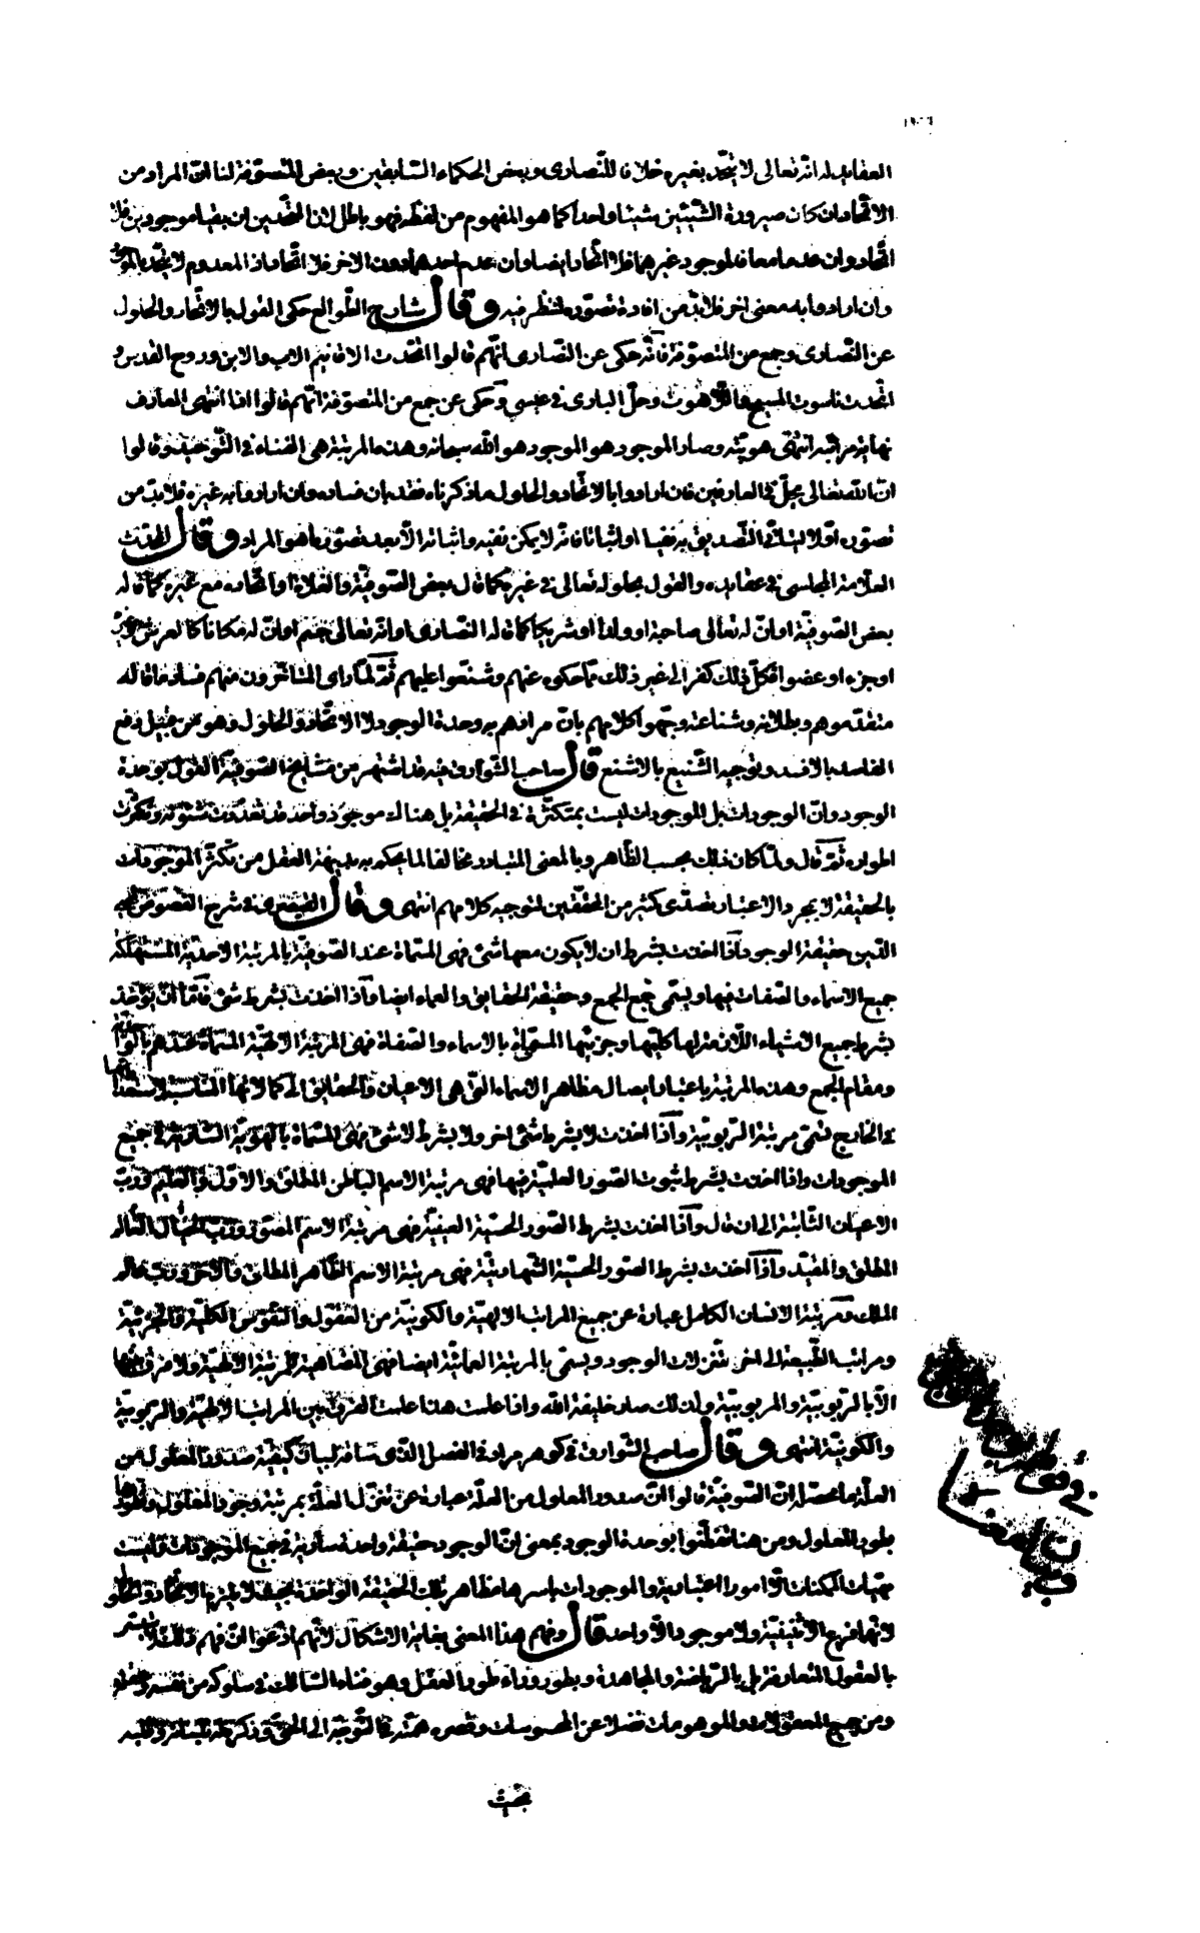 العقايد له انه تعالى لا يتحد بغيره خلافا للنصارى وبعض الحكماء السابقين وبعض المتصوفة لنا ان المراد من
الاتحاد ان كان صيرورة الشيئين شيئا واحدا كما هو المفهوم من لفظه فهو باطل لان المتحدين ان بقيا موجودين فلا
اتحاد وان عدما معا فالموجود غيرهما فلا اتحاد ايضا وان عدم احدهما دون الاخر فلا اتحاد اذ المعدوم لا يتحد بالموجود
وان ارادوا به معنى اخر فلا بد من افادة تصوره لننظر فيه وقال شارح الطوالع حكى القول بالاتحاد والحلول
عن النصارى وجمع من المتصوفة فانه حكى عن النصارى انهم قالوا اتحدت الاقانيم الاب والابن وروح القدس و
اتحدت ناسوت المسيح باللاهوت وحل البارى في عيسى وحكى عن جمع من المتصوفة انهم قالوا اذا انتهى العارف
نهاية مراتبه انتفى هويته وصار الموجود هو الموجود هو الله سبحانه وهذه المرتبة هى الفناء في التوحيد وقالوا
ان الله تعالى يحل في العارفين فان ارادوا بالاتحاد والحلول ما ذكرناه فقد بان فساده وان ارادوا به غيره فلا بد من
تصوره اولا ليتأتى التصديق به نفيا او اثباتا فانه لا يمكن نفيه واثباته الا بعد تصور ما هو المراد وقال المحدث
العلامة المجلسى في عقايده والقول بحلوله تعالى في غيره كما قال بعض الصوفية والغلاة او اتحاده مع غيره كما قاله
بعض الصوفية او ان له تعالى صاحبة او ولدا او شريكا كما قاله النصارى او انه تعالى جسم او ان له مكانا كالعرش وغيره
او جزء او عضوا فكل ذلك كفر الى غير ذلك مما حكوه عنهم وشنعوا عليهم ثم لما راى المتاخرون منهم فساد ما قاله
متقدموهم وبطلانه وشناعته وجهوا كلامهم بان مرادهم به وحدة الوجود لا الاتحاد والحلول وهو من قبيل دفع
الفاسد بالافسد وتوجيه الشنيع بالاشنع قال صاحب الشوارق فيه قد اشتهر من مشايخ الصوفية القول بوحدة
الوجود وان الوجودات بل الموجودات ليست بمتكثرة في الحقيقة بل هناك موجود واحد قد تعددت شئونه وتكثرت
اطواره ثم قال ولما كان ذلك بحسب الظاهر وبالمعنى المتبادر مخالفا لما يحكم به بديهة العقل من تكثر الموجودات
بالحقيقة لا بمجرد الاعتبار تصدى كثير من المحققين لتوجيه كلامهم انتهى وقال القيصرى في شرح الفصوص لمحيى
الدين حقيقة الوجود اذا اخذت بشرط ان لا يكون معها شئ فهى المسماة عند الصوفية بالمرتبة الاحدية المستهلكة
جميع الاسماء والصفات فيها ويسمى جمع الجمع وحقيقة الحقايق والعماء ايضا واذا اخذت بشرط شئ فاما ان يؤخذ
بشرط جميع الاشياء اللازمة لها كليتها وجزئيتها المسماة بالاسماء والصفات فهى المرتبة الالهية المسماة عندهم بالواحدية
ومقام الجمع وهذه المرتبة باعتبار ايصال مظاهر الاسماء التى هى الاعيان والحقايق الى كمالاتها المناسبة لاستعداداتها
في الخارج تسمى مرتبة الربوبية واذا اخذت لا بشرط شئ اخر ولا بشرط لا شئ فهى المسماة بالهوية السارية في جميع
الموجودات واذا اخذت بشرط ثبوت الصور العلمية فيها فهى مرتبة الاسم الباطن المطلق والاول والعليم ورب
الاعيان الثابتة الى ان قال واذا اخذت بشرط الصور الحسية العينية فهى مرتبة الاسم المصور ورب الخيال العالم
المطلق والمقيد واذا اخذت بشرط الصور الحسية الشهادتية فهى مرتبة الاسم الظاهر المطلق والاخر ورب عالم
الملك ومرتبة الانسان الكامل عبارة عن جميع المراتب الالهية والكونية من العقول والنفوس الكلية والجزئية
ومراتب الطبيعة الى اخر تنزلات الوجود ويسمى بالمرتبة العمائية ايضا فهى المضاهية للمرتبة الالهية ولا فرق بينهما
الا بالربوبية والمربوبية ولذلك صار خليفة الله واذا علمت هذا علمت الفرق بين المراتب الالهية والربوبية
والكونية انتهى وقال صاحب الشوارق في كوهر مراد في الفصل الذى ساقه لبيان كيفية صدور المعلول من
العلة ما محصله ان الصوفية قالوا ان صدور المعلول من العلة عبارة عن تنزل العلة بمرتبة وجود المعلول وتطورها
بطور المعلول ومن هنا تفطنوا بوحدة الوجود بمعنى ان الوجود حقيقة واحدة سارية في جميع الموجودات وليست
مهيات الممكنات الا امورا اعتبارية والموجودات باسرها مظاهر تلك الحقيقة الواحدة بحيث لا يلزم الاتحاد والحلول
لانهما فرع الاثنينية ولا موجود الا واحد قال وفهم هذا المعنى بغاية الاشكال لانهم ادعوا ان فهم ذلك لا يتيسر
بالعقول المتعارفة بل بالرياضة والمجاهدة وبطور وراء طور العقل وهو فناء السالك في سلوكه من نفسه
ومن جميع المعقولات والموهومات فضلا عن المحسوسات وقصره همته في التوجه الى الحق وذكره بلسانه وقلبه
بحيث